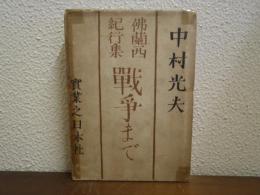 中村光夫
佛蘭西
紀行集
戰爭まで
實業之日本社